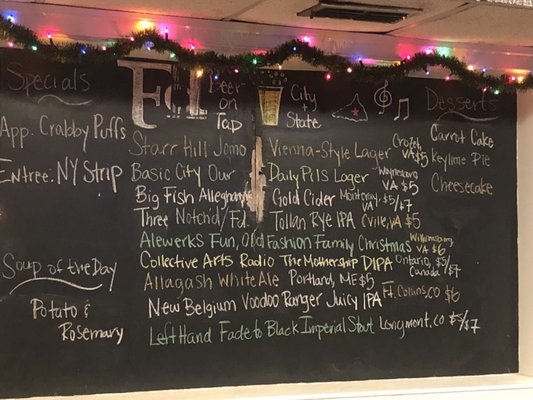 Specials
App. Crabby Puffs
Entree: NY Strip
Soup of the Day
Potato &
Rosemary
Beer
on
Tap
City
+
State
Starr Hill Jomo Vienna-Style Lager Crozet, VA $5
Basic City Our Daily Pils Lager Waynesboro, VA $5
Big Fish Allegheny Gold Cider Monterey, VA $5/$7
Three Notch'd/Fd. Tollan Rye IPA Cville, VA $5
Alewerks Fun, Old Fashion Family Christmas Williamsburg, VA $6
Collective Arts Radio The Mothership DIPA Ontario, Canada $5/$7
Allagash White Ale Portland, ME $5
New Belgium Voodoo Ranger Juicy IPA Ft. Collins, CO $6
Left Hand Fade to Black Imperial Stout Longmont, CO $5/$7
Desserts
Carrot Cake
Key lime Pie
Cheesecake